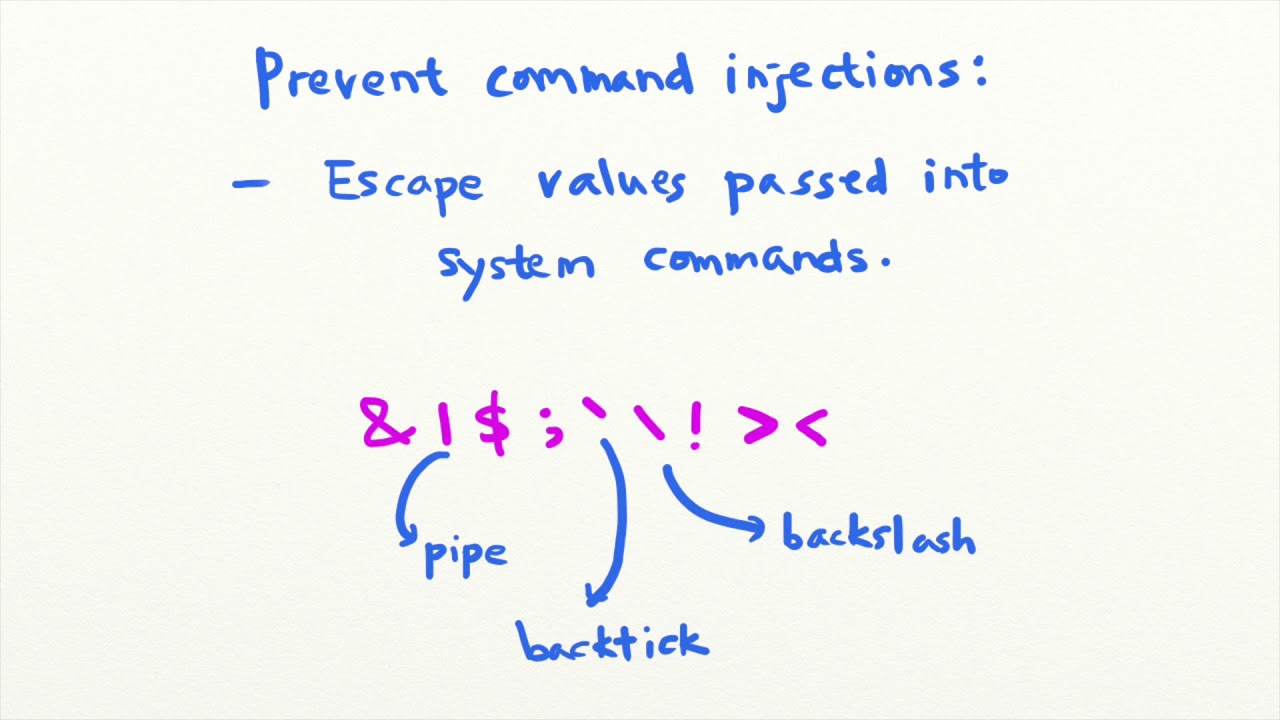 Prevent command injections:
- Escape values passed into
system commands.
& | $ ; ` \ ! > <
pipe
backslash
backtick